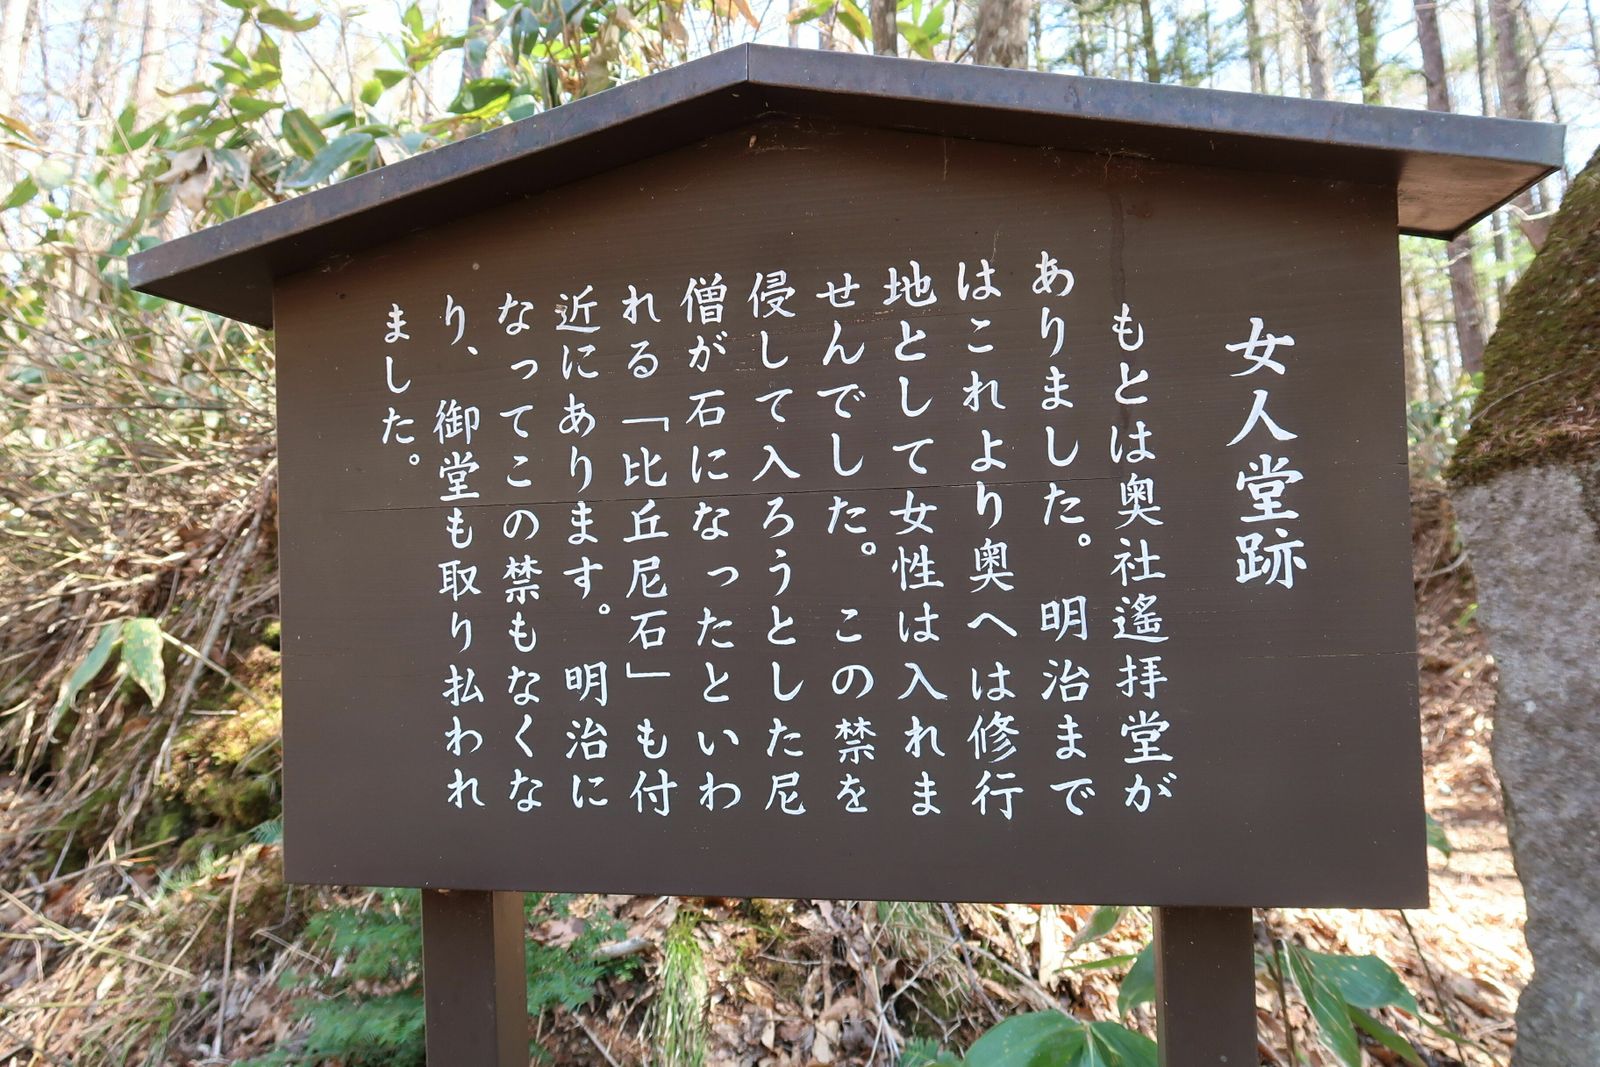 女人堂跡
もとは奥社遙拝堂が
ありました。明治まで
はこれより奥へは修行
地として女性は入れま
せんでした。この禁を
侵して入ろうとした尼
僧が石になったといわ
れる「比丘尼石」も付
近にあります。明治に
なってこの禁もなくな
り、御堂も取り払われ
ました。